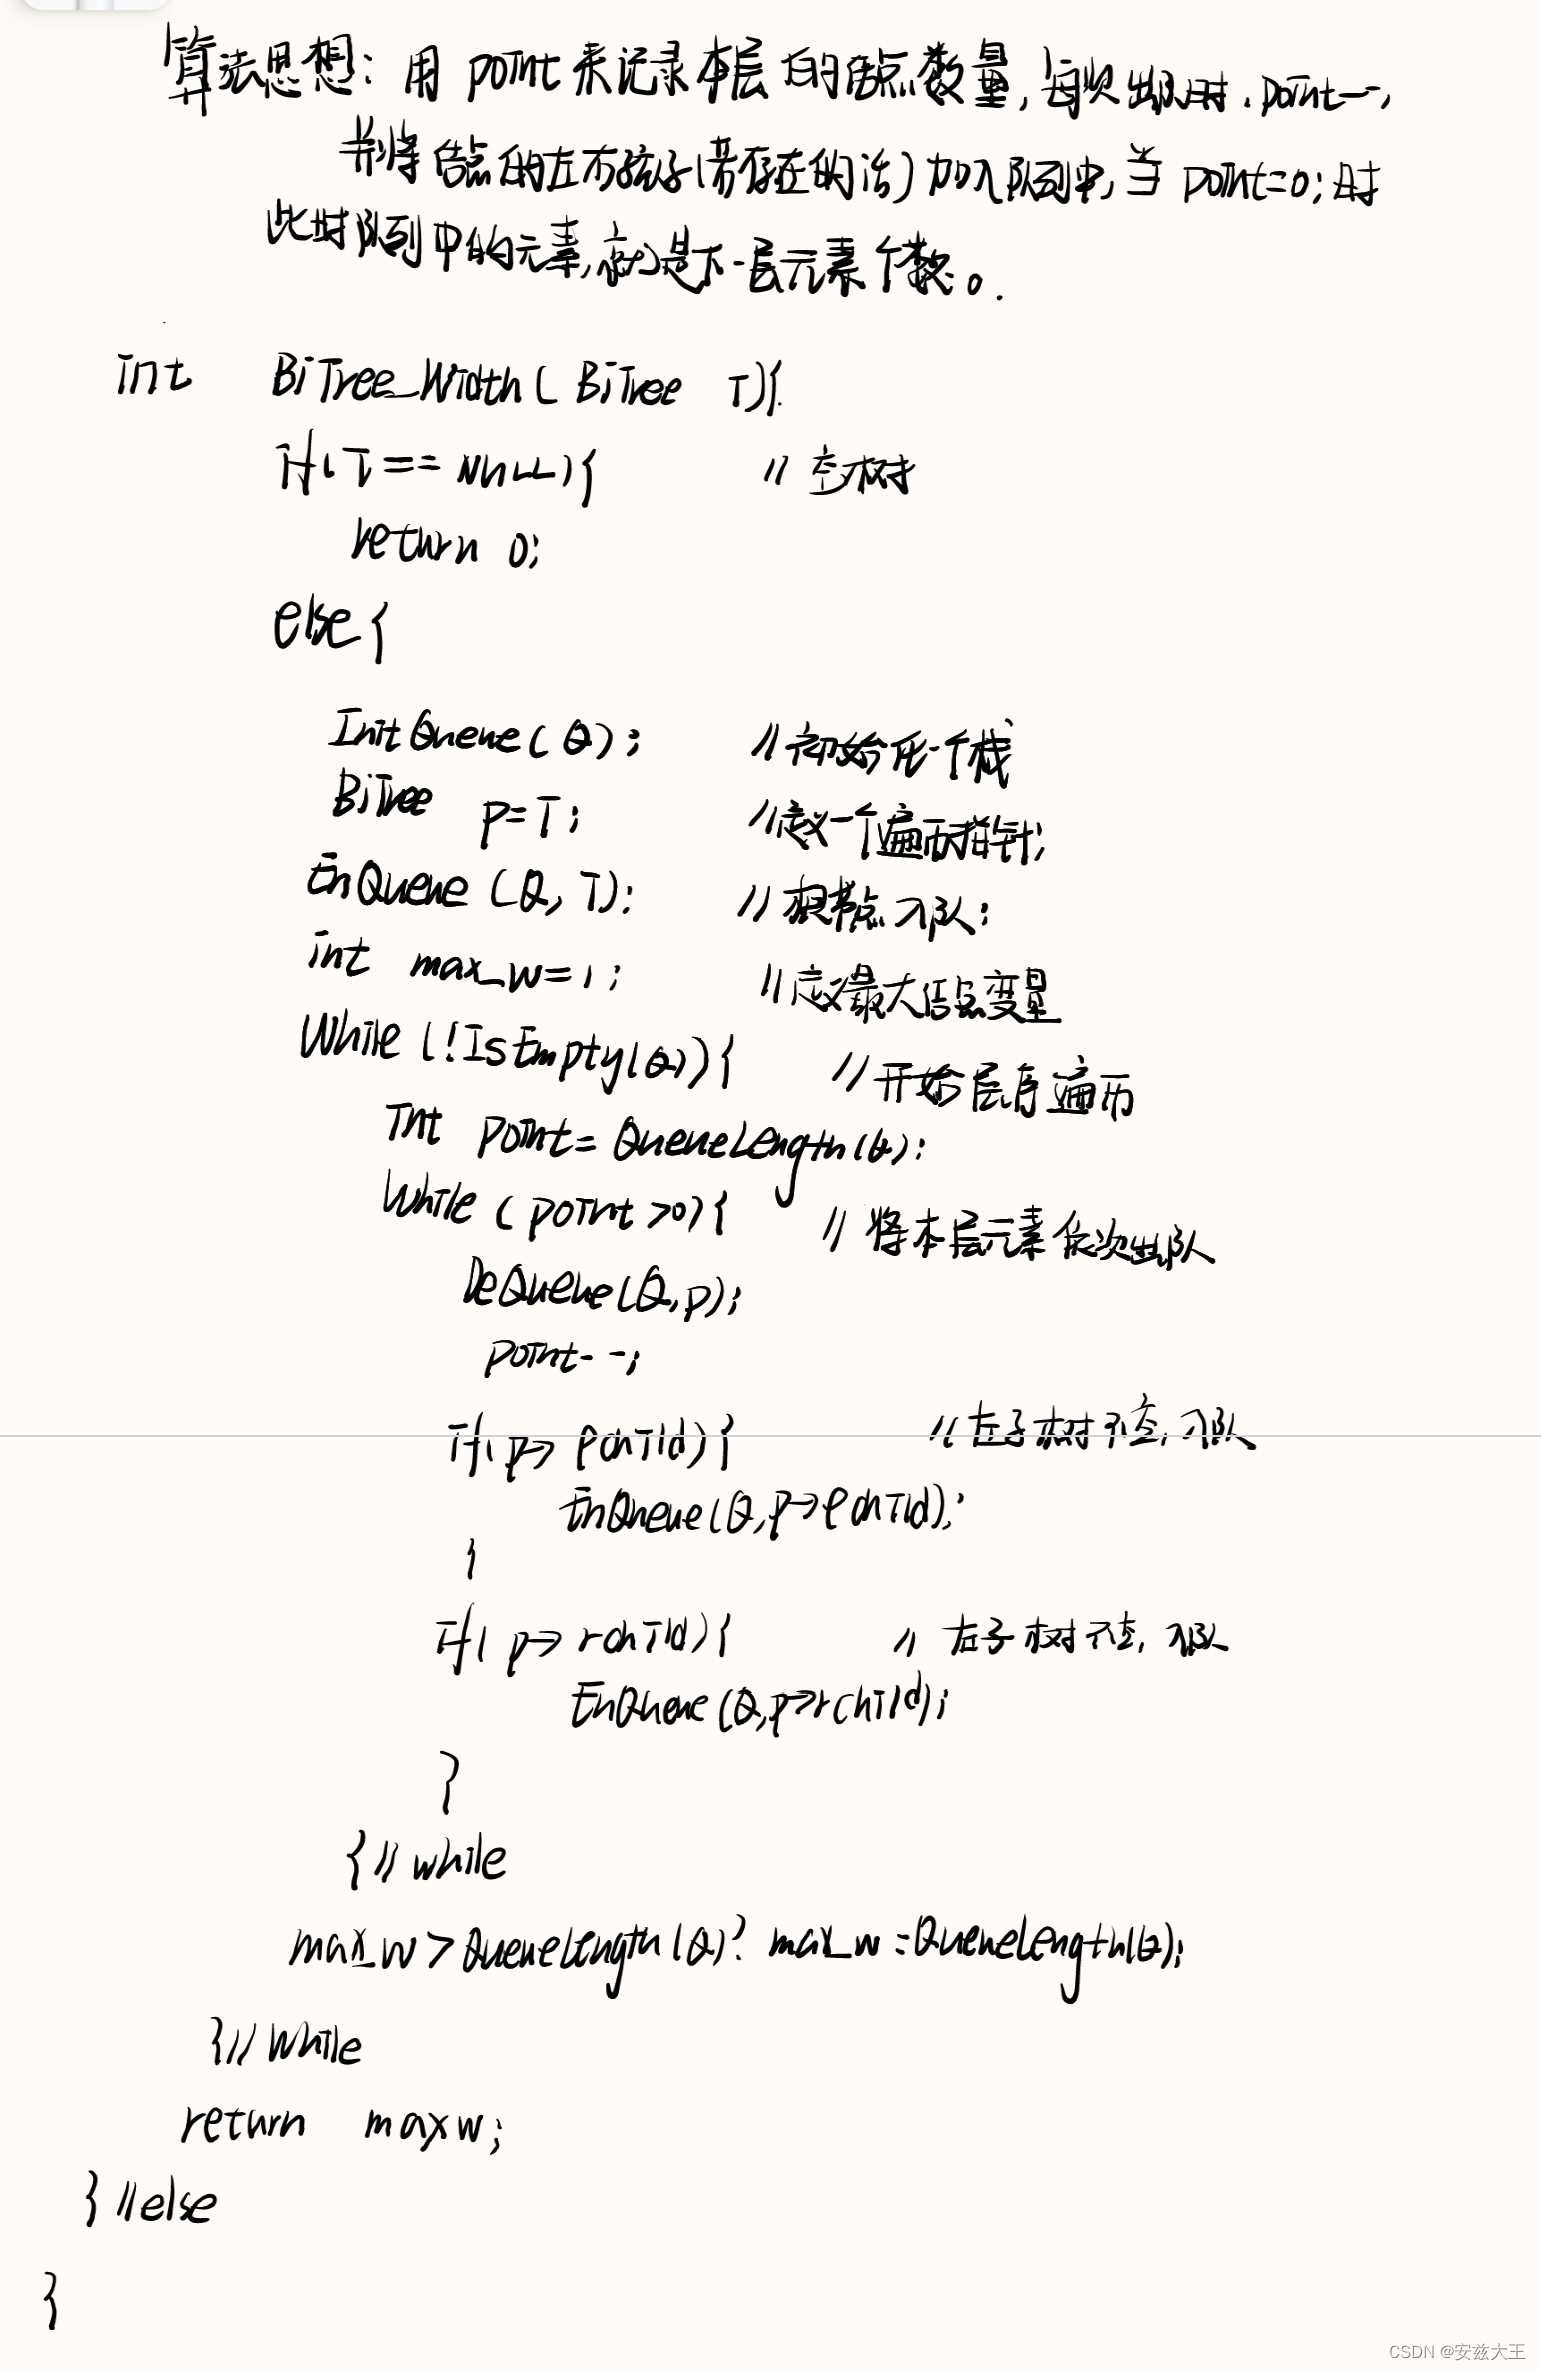 算法思想: 用 point 来记录本层的结点数量, 每次出队时, point--,
并将结点的左右孩子(若存在的话)加入队列中, 当 point=0; 时
此时队列中的元素, 就是下一层元素个数。.
int BiTree_Width( BiTree T){
if( T == NULL){ // 空树
return 0;
else {
InitQueue( Q) ; // 初始化一个栈
BiTree p=T ; // 定义一个遍历指针;
EnQueue (Q, T); // 根结点入队;
int max_w=1 ; // 定义最大结点变量
While (!IsEmpty(Q)) { // 开始层序遍历
Int point= QueueLength(Q);
While ( point >0) { // 将本层元素依次出队
DeQueue(Q,p);
point--;
if( p-> lchild) { // 左子树不空, 入队
EnQueue(Q,p->lchild);
}
if( p-> rchild) { // 右子树不空, 入队
EnQueue (Q,p->rchild);
}
{ // while
max_w > QueueLength (Q)? max_w :QueueLength(Q);
} // While
return maxw;
} //else
}
CSDN @安兹大王